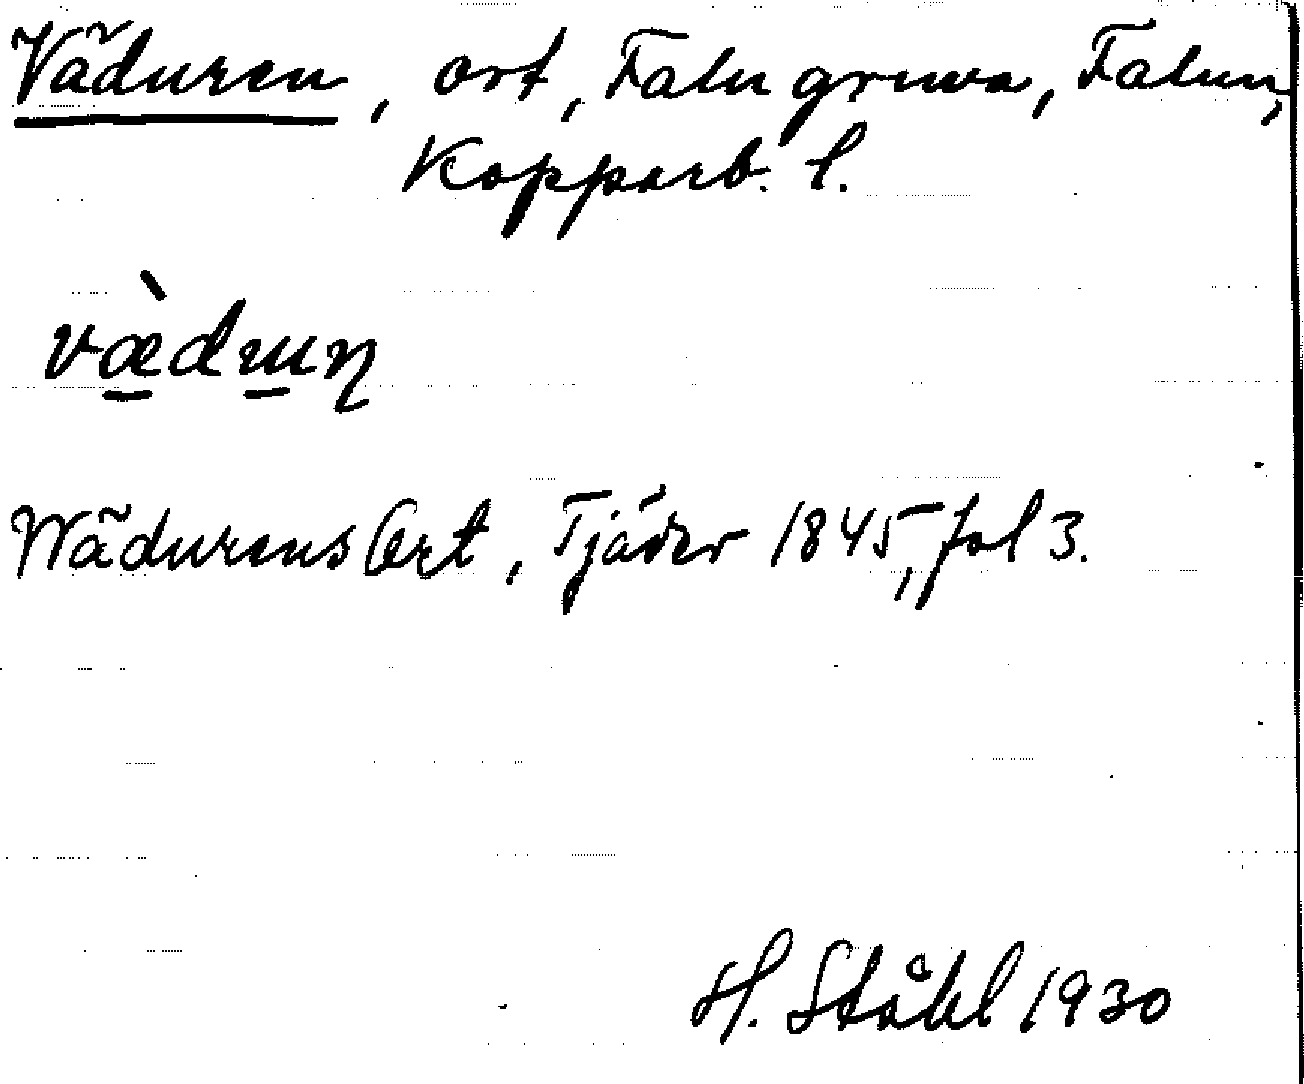 Väduren, ort, Falu gruva, Falun,
Kopparb. l.
væ̀dɯɳ
Wädurens Ort, Tjäder 1845, fol 3.
H. Ståhl 1930